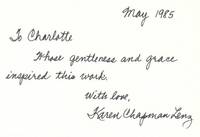 May 1985
To Charlotte
Whose gentleness and grace
inspired this work.
With love,
Karen Chapman Lenz